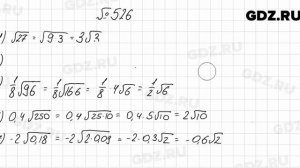 № 526
GDZ.RU
) √27 = √9·3 = 3√3
)
) 1/8 √96 = 1/8 √16·6 = 1/8 · 4√6 = 1/2 √6
) 0,4√250 = 0,4√25·10 = 0,4·5√10 = 2√10
) -2√0,18 = -2√2·0,09 = -2·0,3√2 = -0,6√2
GDZ.RU